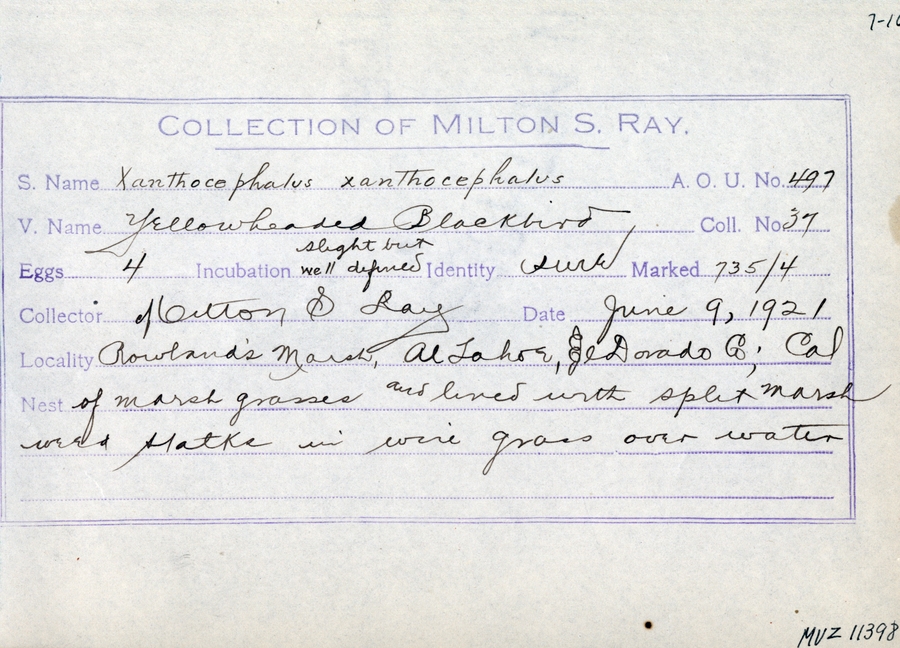 7-10
COLLECTION OF MILTON S. RAY.
S. Name Xanthocephalus xanthocephalus A. O. U. No. 497
V. Name Yellowheaded Blackbird Coll. No 37
Eggs 4 Incubation slight but well defined Identity sure Marked 735/4
Collector Milton S Ray Date June 9, 1921
Locality Rowland's Marsh, Al Tahoe, El Dorado Co; Cal
Nest of marsh grasses and lined with split marsh
weed stalks in wire grass over water
MVZ 11398